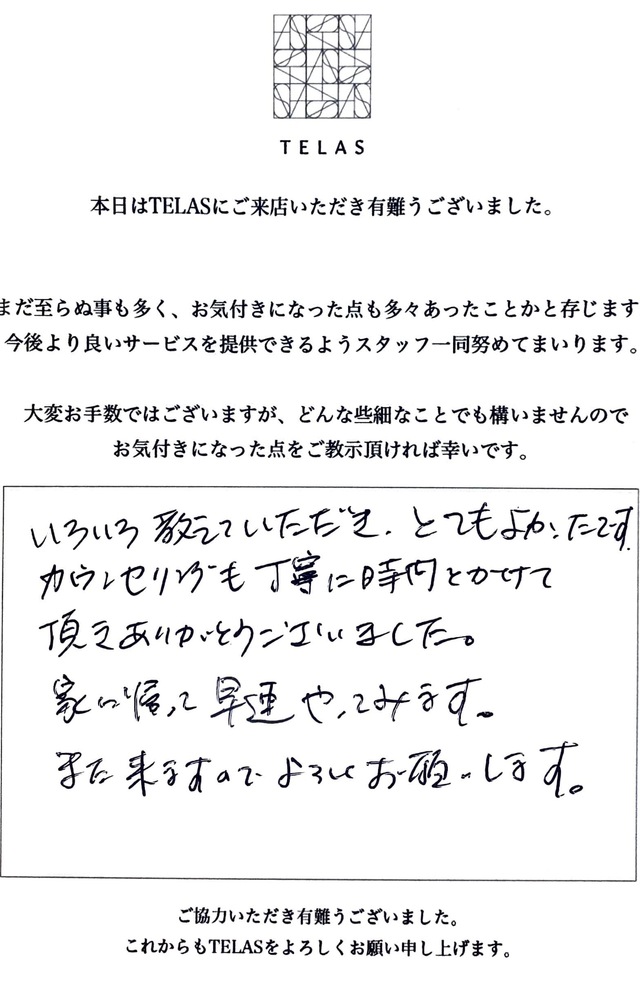 TELAS
本日はTELASにご来店いただき有難うございました。
まだ至らぬ事も多く、お気付きになった点も多々あったことかと存じます
今後より良いサービスを提供できるようスタッフ一同努めてまいります。
大変お手数ではございますが、どんな些細なことでも構いませんので
お気付きになった点をご教示頂ければ幸いです。
いろいろ教えていただき、とてもよかったです。
カウンセリングも丁寧に時間とかけて
頂きありがとうございました。
家に帰って早速やってみます。
また来ますのでよろしくお願いします。
ご協力いただき有難うございました。
これからもTELASをよろしくお願い申し上げます。